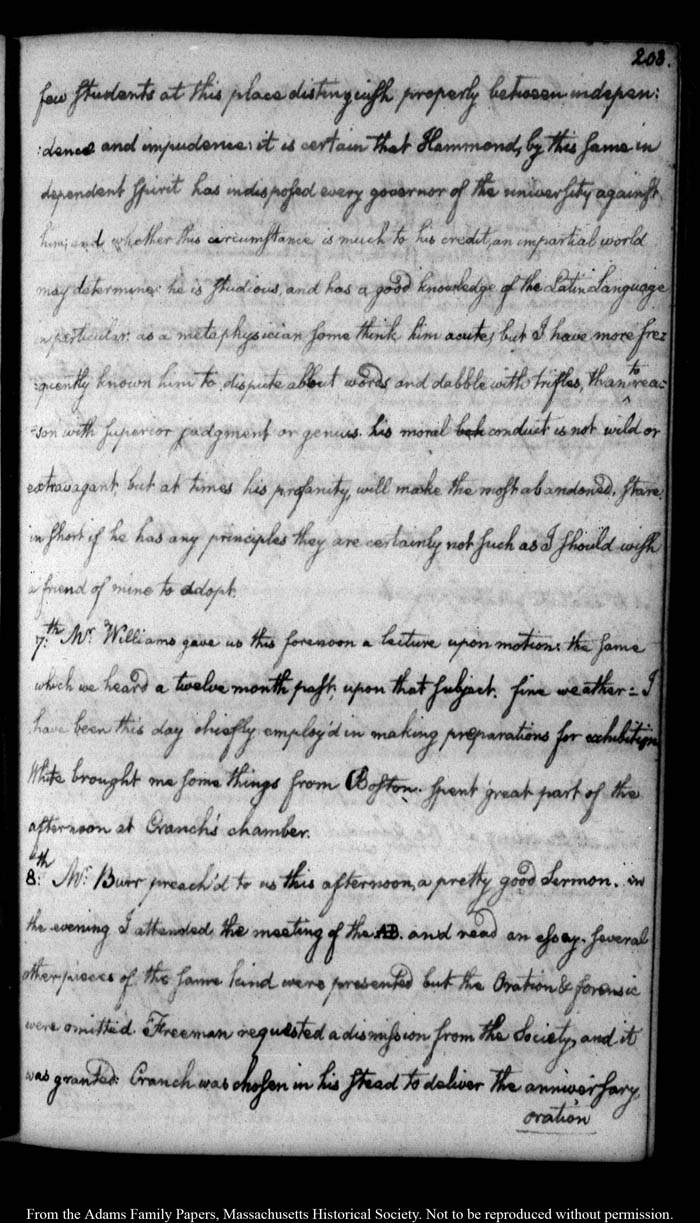 203.
few students at this place distinguish properly between indepen:
:dence and impudence: it is certain that Hammond, by this same in
dependent spirit has indisposed every governor of the university against
him; and whether this circumstance is much to his credit, an impartial world
may determine: he is studious, and has a good knowledge of the Latin Language
in particular: as a metaphysician some think him acute, but I have more fre=
=quently known him to dispute about words and dabble with trifles, than to rea=
=son with superior judgment or genius. his moral conduct is not wild or
extravagant, but at times his profanity, will make the most abandoned, stare.
in short if he has any principles they are certainly not such as I should wish
a friend of mine to adopt.
7:th Mr. Williams gave us this forenoon a lecture upon motion: the same
which we heard a twelve month past, upon that subject. fine weather = I
have been this day chiefly employ'd in making preparations for exhibition
White brought me some things from Boston. spent great part of the
afternoon at Cranch's chamber.
8:th Mr. Burr preach'd to us this afternoon, a pretty good Sermon. in
the evening I attended the meeting of the AB. and read an essay. several
other pieces of the same kind were presented but the Oration & forensic
were omitted. Freeman requested a dismission from the Society, and it
was granted: Cranch was chosen in his stead to deliver the anniversary
oration
From the Adams Family Papers, Massachusetts Historical Society. Not to be reproduced without permission.